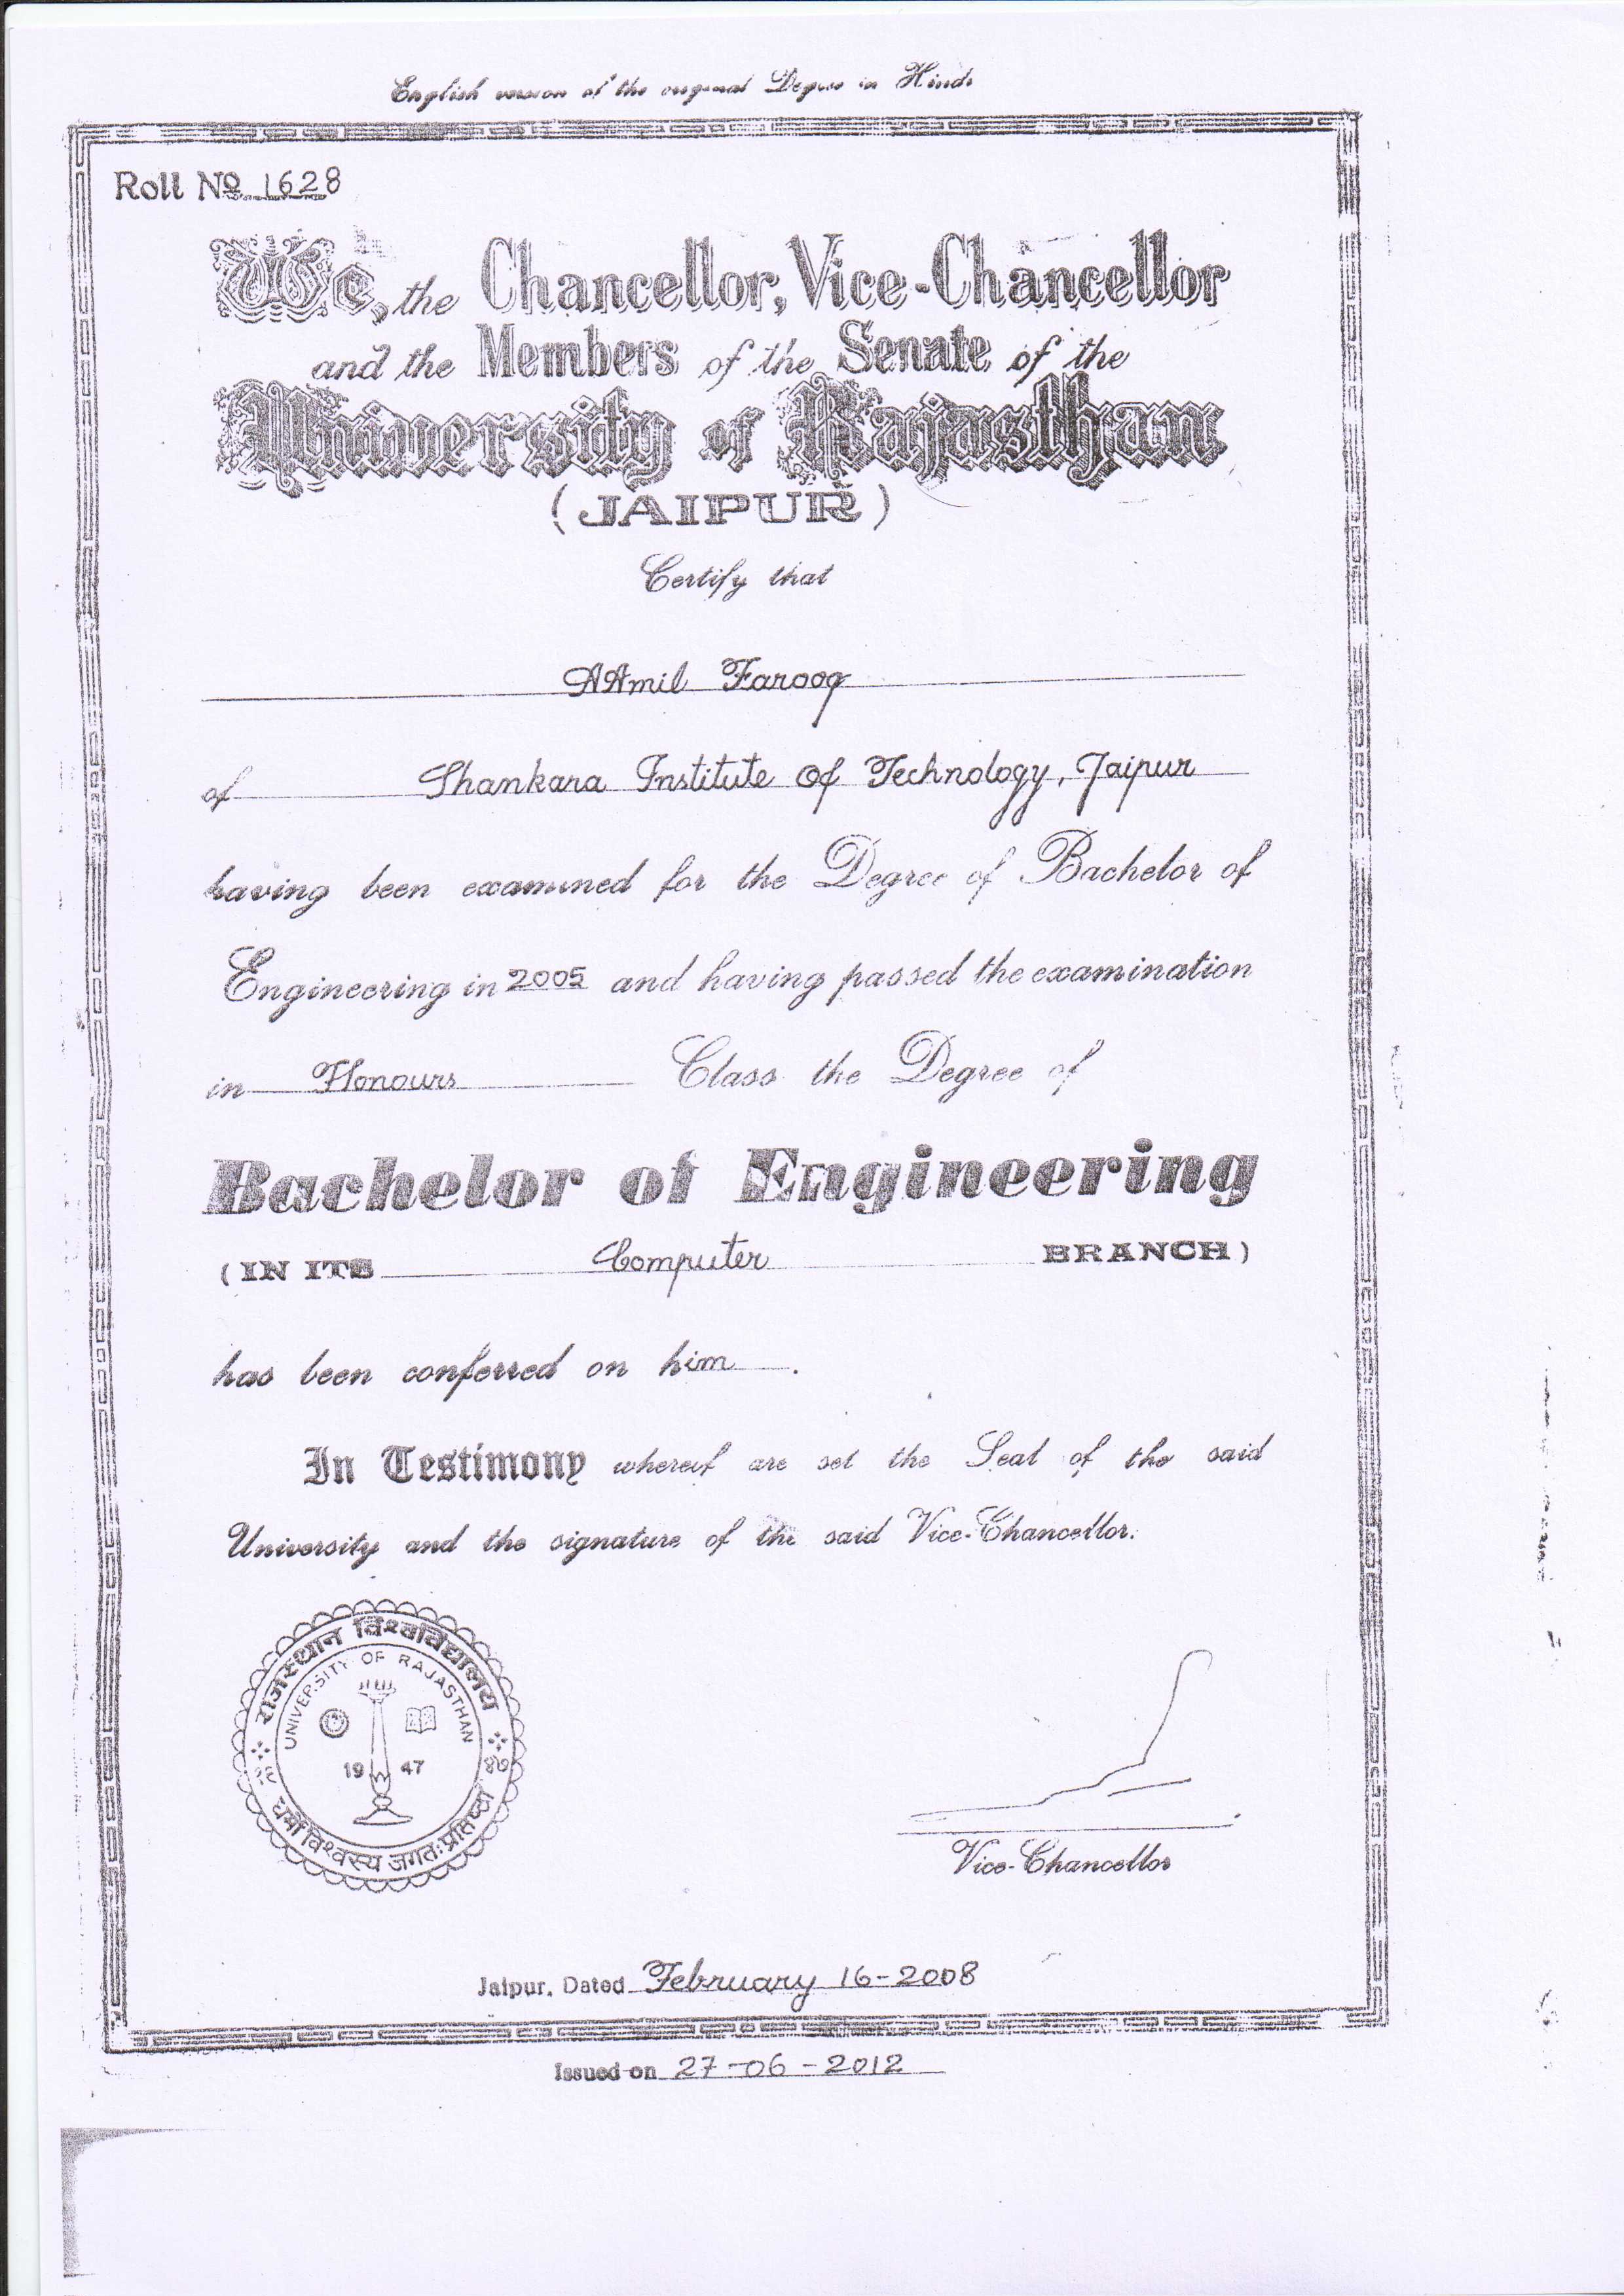 English version of the original Degree in Hindi
Roll No 1628
We, the Chancellor, Vice-Chancellor
and the Members of the Senate of the
University of Rajasthan
(JAIPUR)
Certify that
AAmil Farooq
of Shankara Institute Of Technology, Jaipur
having been examined for the Degree of Bachelor of
Engineering in 2005 and having passed the examination
in Honours Class the Degree of
Bachelor of Engineering
(IN ITS Computer BRANCH)
has been conferred on him .
In Testimony whereof are set the Seal of the said
University and the signature of the said Vice-Chancellor.
राजस्थान विश्वविद्यालय
UNIVERSITY OF RAJASTHAN
19 47
धर्मो विश्वस्य जगतः प्रतिष्ठा
Vice-Chancellor
Jaipur, Dated February 16-2008
Issued on 27-06-2012